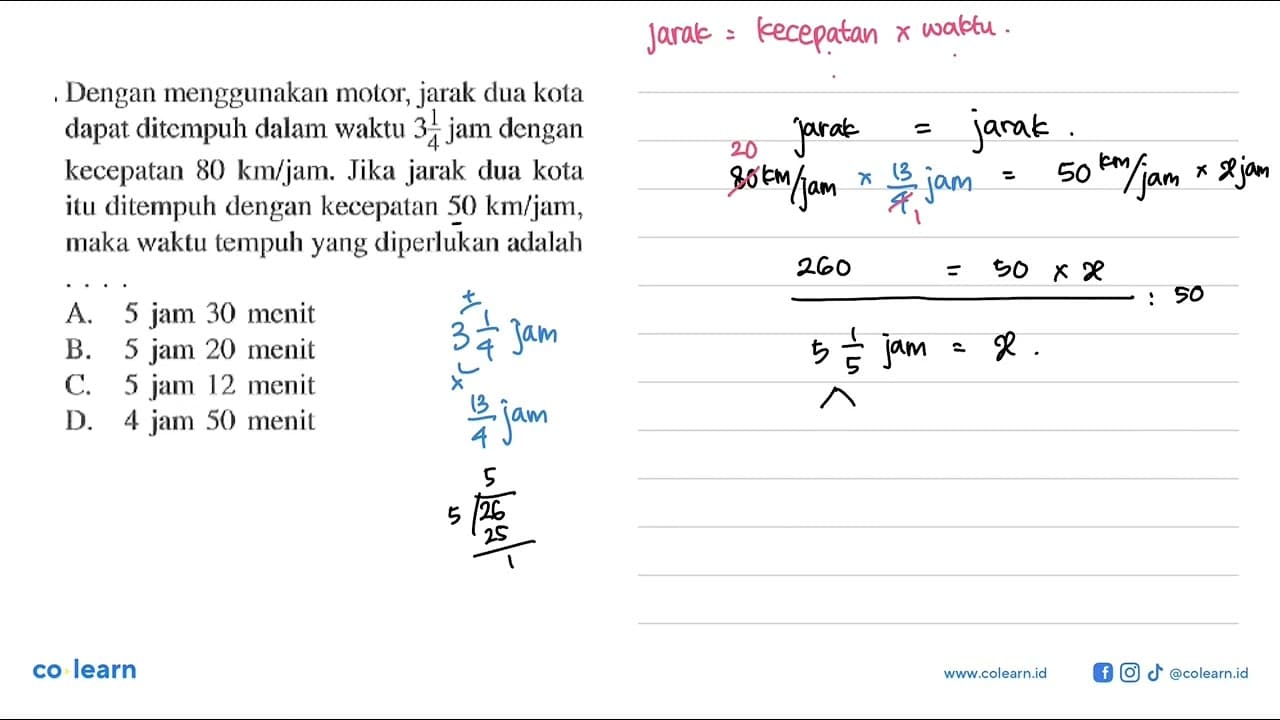 jarak = kecepatan x waktu.
Dengan menggunakan motor, jarak dua kota
dapat ditempuh dalam waktu 3 1/4 jam dengan
kecepatan 80 km/jam. Jika jarak dua kota
itu ditempuh dengan kecepatan 50 km/jam,
maka waktu tempuh yang diperlukan adalah
. . . .
A. 5 jam 30 menit
B. 5 jam 20 menit
C. 5 jam 12 menit
D. 4 jam 50 menit
+
3 1/4 jam
x
13/4 jam
5
5 26
25
1
jarak = jarak.
20
80 km/jam x 13/4 jam = 50 km/jam x x jam
1
260 = 50 x x
: 50
5 1/5 jam = x.
co learn
www.colearn.id
@colearn.id